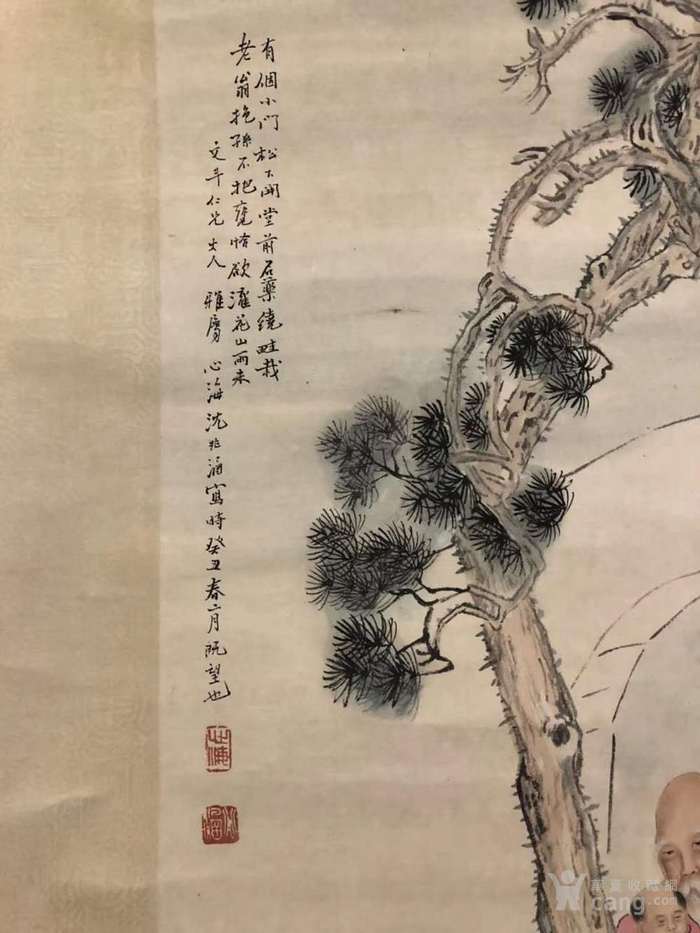 有個小門松下開堂前名藥繞畦栽
老翁抱孫不抱甕恰欲灌花山雨來
文斗仁兄大人雅屬心海沈兆涵寫時癸丑春二月既望也
心海
華夏收藏網
cang.com